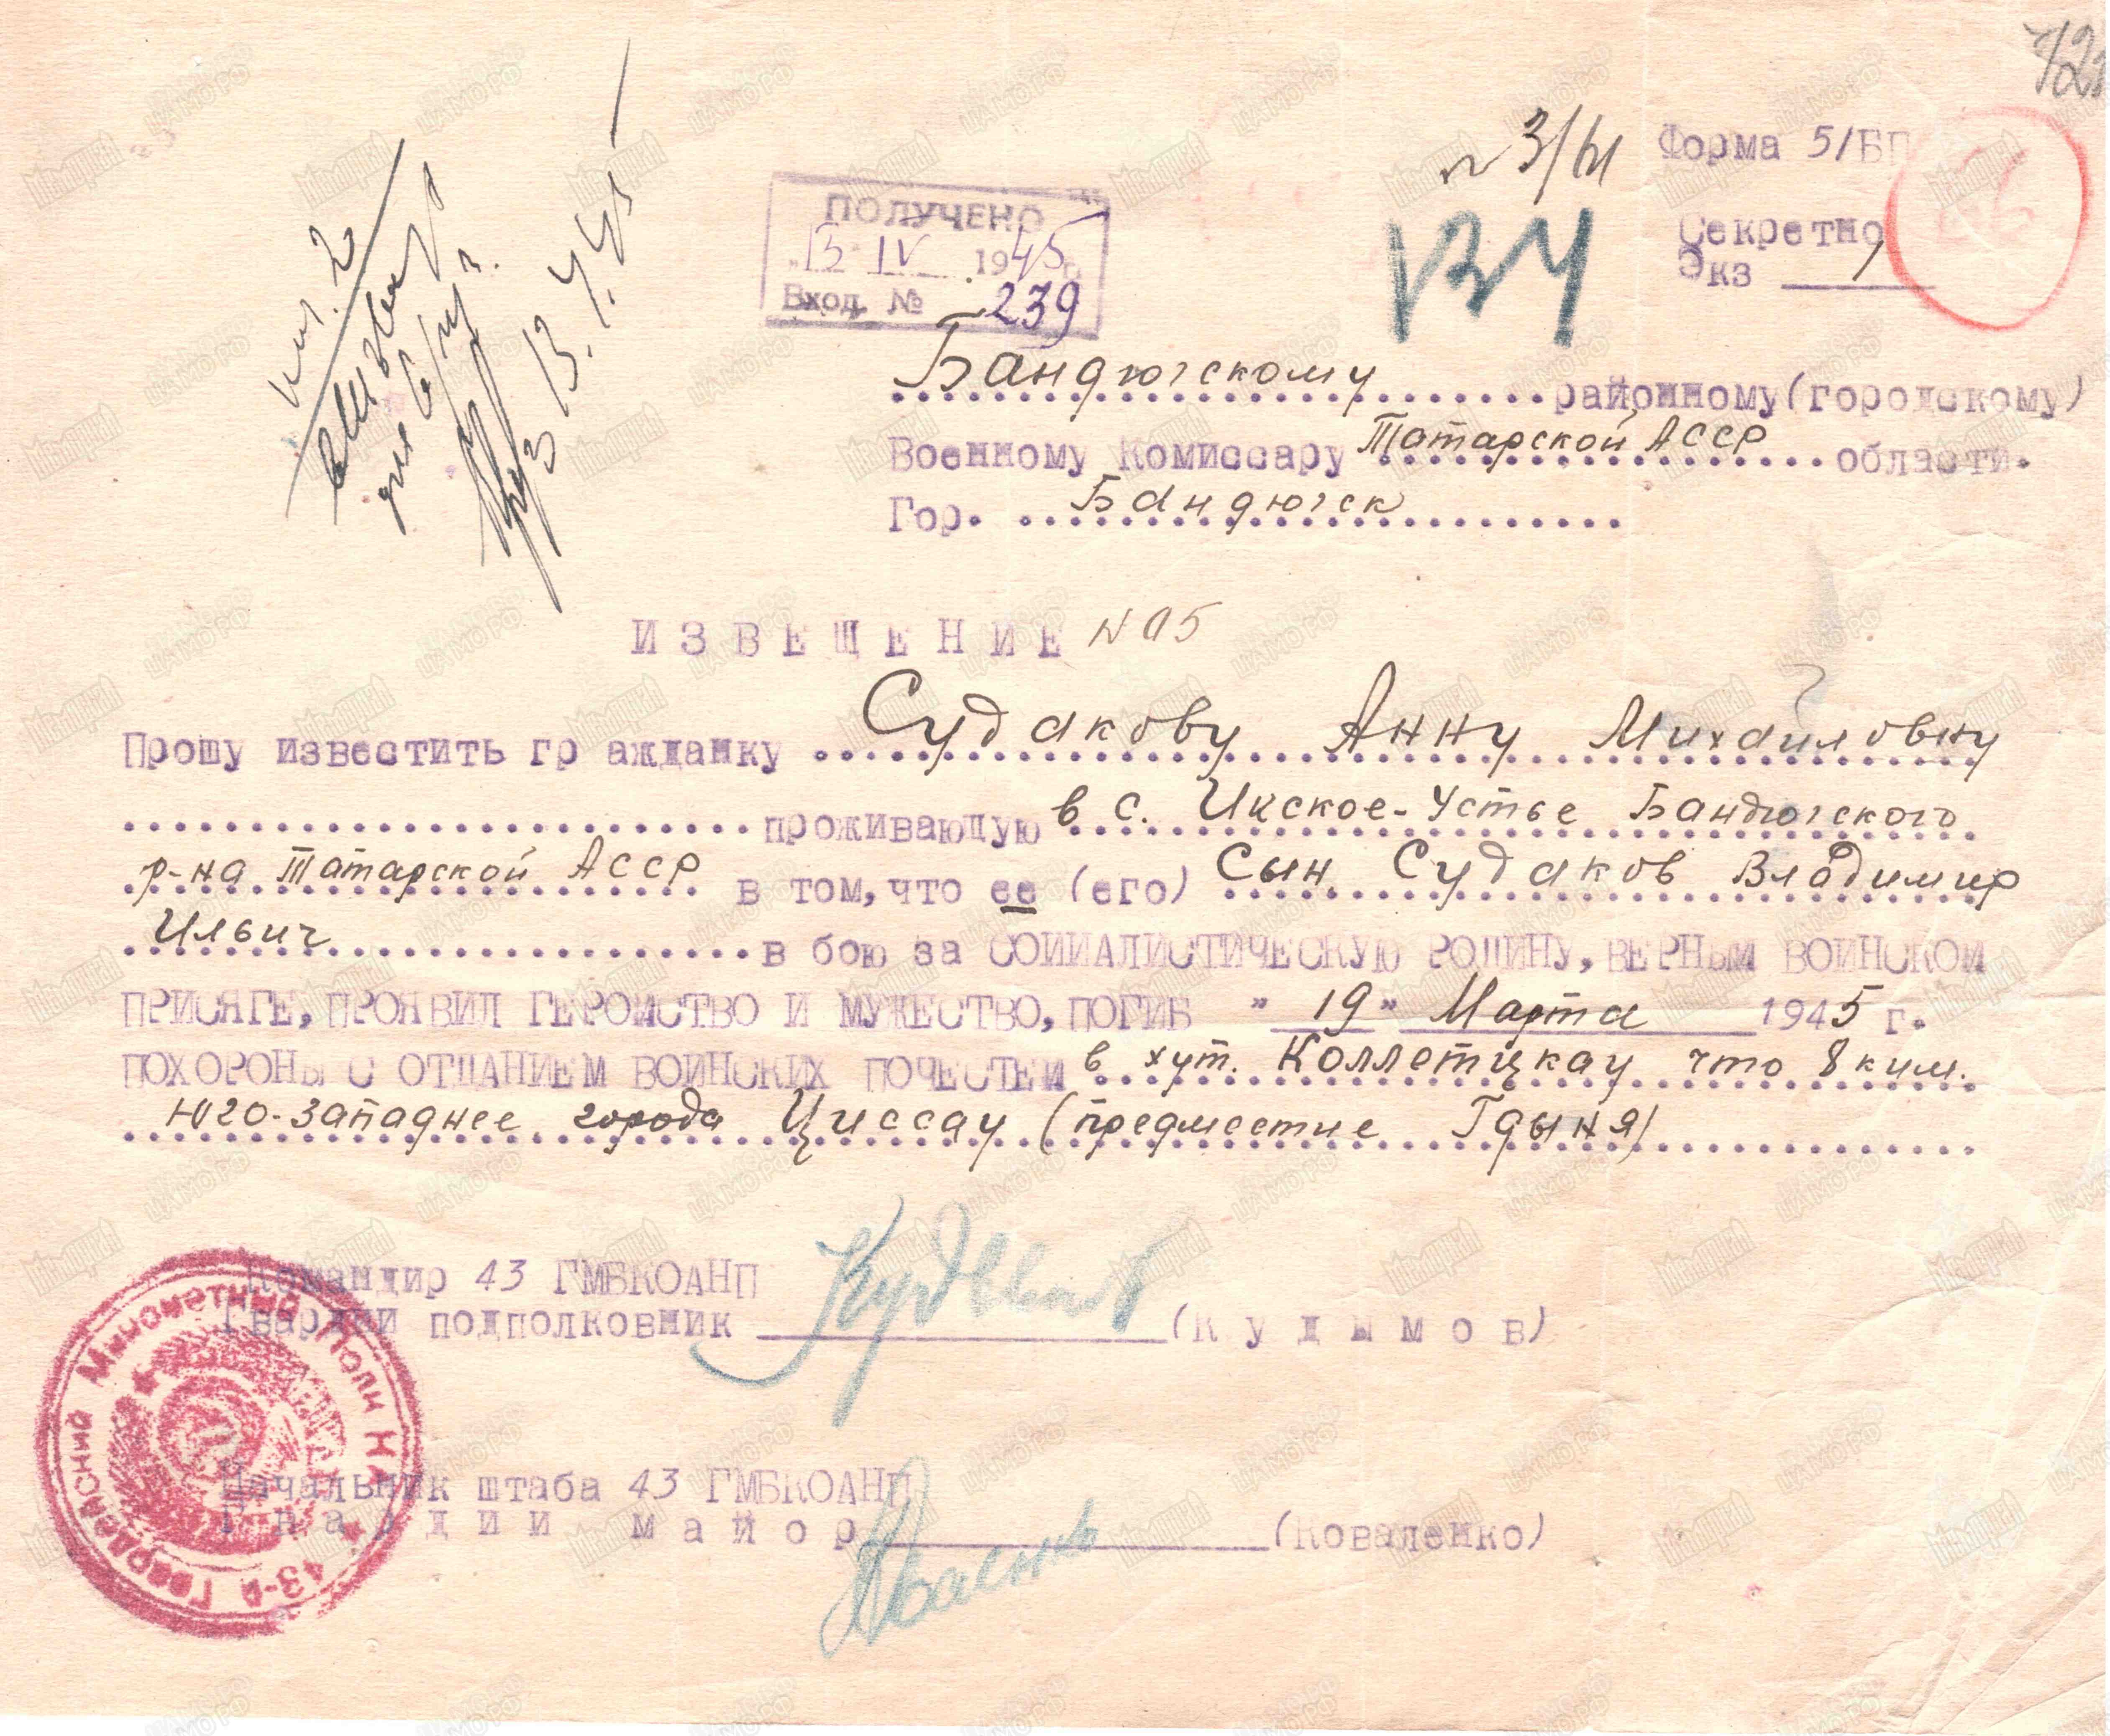 Форма 5/БП
Секретно
Экз 1
134
ПОЛУЧЕНО
"13" IV 1945 г.
Вход. № 239
13.4.45
Бандюгскому районному (городскому)
Военному Комиссару Татарской АССР области.
Гор. Бандюгск
ИЗВЕЩЕНИЕ N 05
Прошу известить гр ажданку Судакову Анну Михайловну
проживающую в с. Икское-Устье Бандюгского
р-на Татарской АССР в том, что ее (его) Сын Судаков Владимир
Ильич в бою за СОЦИАЛИСТИЧЕСКУЮ РОДИНУ, ВЕРНЫМ ВОИНСКОЙ
ПРИСЯГЕ, ПРОЯВИЛ ГЕРОЙСТВО И МУЖЕСТВО, ПОГИБ "19" Марта 1945 г.
ПОХОРОНЫ С ОТДАНИЕМ ВОИНСКИХ ПОЧЕСТЕЙ в хут. Коллетцкау что 8 клм.
Юго-западнее города Циссау (предместие Гдыня)
Командир 43 ГМБКОАНП
Гвардии подполковник (Кудымов)
Начальник штаба 43 ГМБКОАНП
Гвардии майор (Коваленко)
43-й Гвардейский Минометный Полк НКО